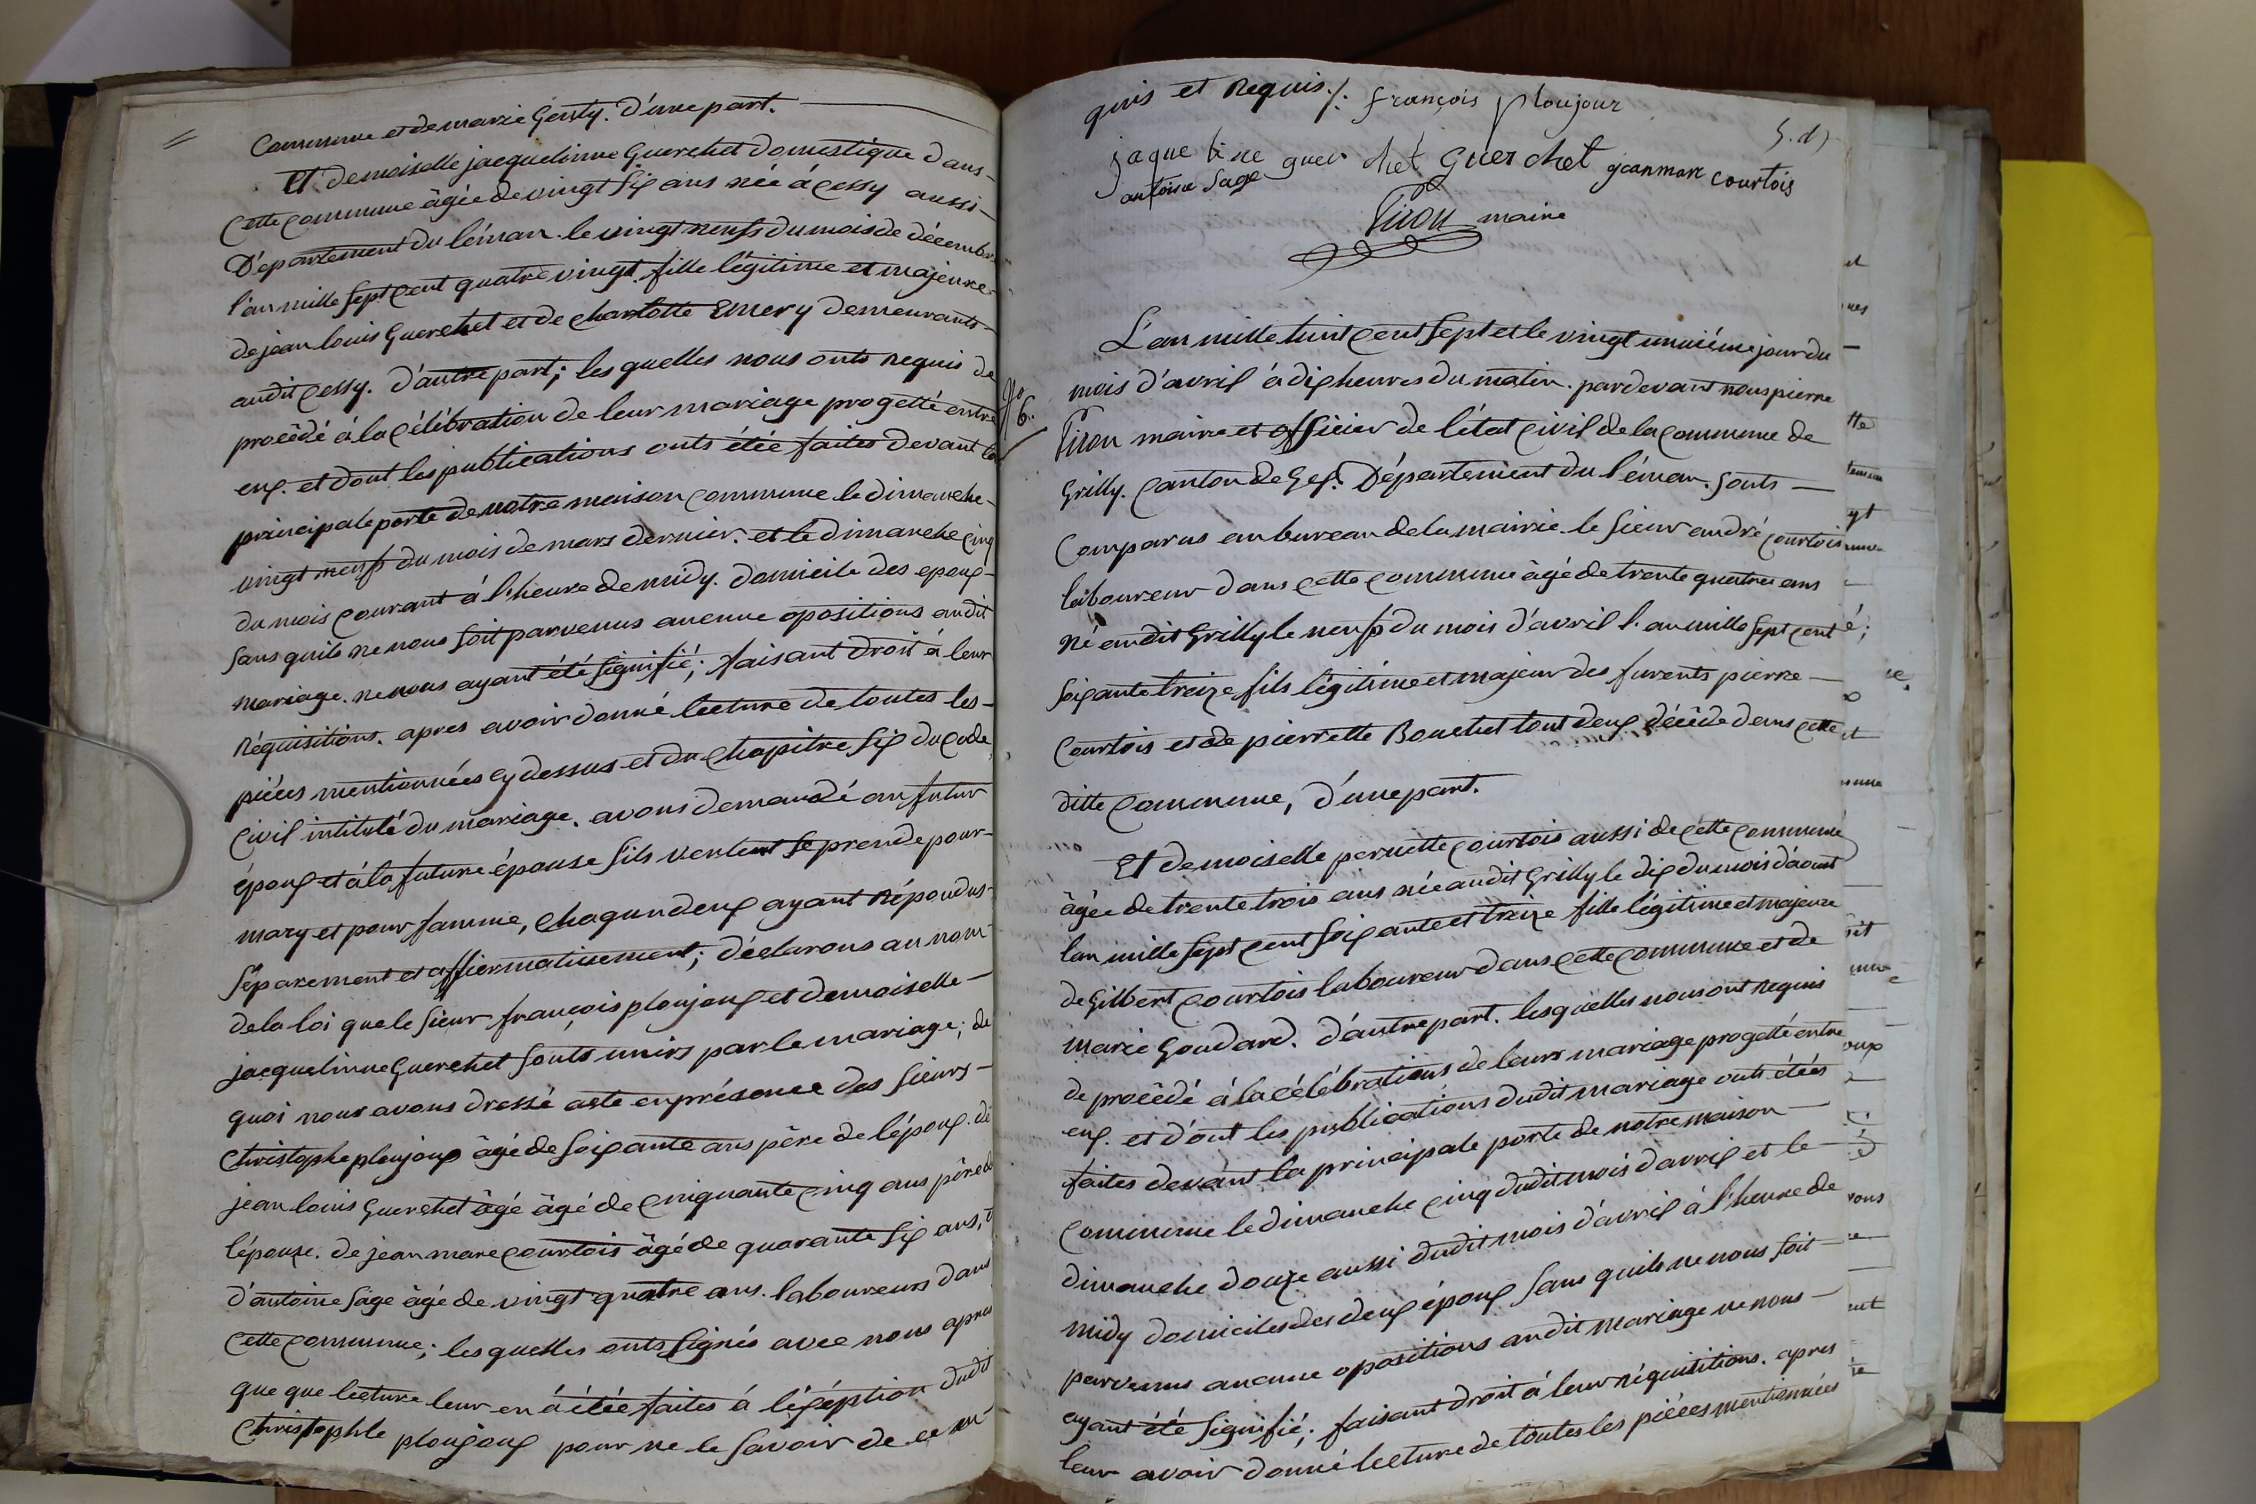 Commune et de marie Genty. d'une part.
Et demoiselle jacquelinne Guerchet domestique dans
cette commune âgée de vingt six ans née à Cessy aussi
Département du léman. le vingt neuf du mois de décembre
l'an mille sept cent quatre vingt. fille légitime et majeure
de jean louis Guerchet et de charlotte Emery demeurants
audit Cessy. d'autre part; les quelles nous onts requis de
procédé à la célébration de leur mariage progetté entre
eux. et dont les publications onts étée faites devant la
principale porte de notre maison commune le dimanche
vingt neuf du mois de mars dernier. et le dimanche cinq
du mois courant à l'heure de midy. domicile des epoux
sans quils ne nous soit parvenus aucune opositions audit
mariage. ne nous ayant été signifié; faisant droit à leur
réquisitions. apres avoir donné lecture de toutes les
piéces mentionnées cy dessus et du chapitre six du code
Civil intitulé du mariage. avons demandé au futur
époux et à la future épouse sils veulent se prende pour
mary et pour famme, chaqun deux ayant répondus
séparement et affiermativement; déclarons au nom
de la loi que le sieur françois ploujoux et demoiselle
jacquelinne Guerchet sonts unirs par le mariage; de
quoi nous avons dressé acte en présence des sieurs
Christophe ploujoux âgé de soixante ans père de l'époux. de
jean louis Guerchet âgé âgé de cinquante cinq ans père de
l'épouse. de jean marc courtois âgé de quarante six ans, et
d'antoine sage âgé de vingt quatre ans. laboureurs dans
cette commune; les quelles onts signés avec nous apres
que que lecture leur en à étée faites à l'éxéption dudit
Christophle ploujoux pour ne le savoir de ce en-
quis et requis./. françois ploujoux
5. d)
jaqueline guerchét Guerchet jean marc courtois
antoine Sage
Piron maire
No 6.
L'an mille huit cent sept et le vingt uniéme jour du
mois d'avril à dix heures du matin. pardevant nous pierre
Piron maire et officier de l'état civil de la commune de
Grilly. canton de Gex. Département du léman. sonts
comparus au bureau de la mairie le sieur andré courtois
laboureur dans cette commune âgé de trente quatre ans
né audit Grilly le neuf du mois d'avril l'an mille sept cent
soixante treize fils légitime et majeur des furents pierre
Courtois et de pierrette Bouchet tout deux décédé dans cette
ditte commune, d'une part.
Et demoiselle pernette courtois aussi de cette commune
âgée de trente trois ans née audit Grilly le dix du mois d'aoust
lan mille sept cent soixante et treize fille légitime et majeure
de Gilbert courtois laboureur dans cette commune et de
marie Goudard. d'autre part. lesquelles nous ont requis
de procédé à la célébrations de leurs mariage progetté entre
eux. et d'ont les publications dudit mariage onts étées
faites devant la principale porte de notre maison
commune le dimanche cinq dudit mois d'avril et le
dimanche douze aussi dudit mois d'avril à l'heure de
midy domiciles des deux époux sans quils ne nous soit
parvenus aucune opositions audit mariage ne nous
ayant été signifié; faisant droit à leur réquisitions. apres
leur avoir donné lecture de toutes les piéces mentionnées